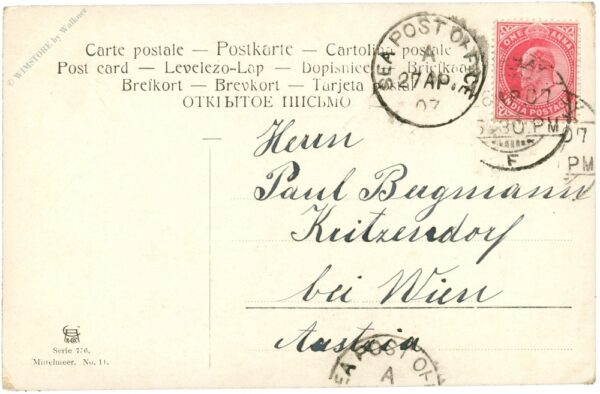 © WIMSTORE by Walkner
Carte postale — Postkarte — Cartolina postale
Post card — Levelezo-Lap — Dopisnice —
Brefkort — Brevkort — Tarjeta
ОТКРЫТОЕ ПИСЬМО
SEA POST OFFICE
A
27 AP.
07
ONE ANNA
INDIA POSTAGE
07
30 PM
F
07
PM
Herrn
Paul Bergmann
Kritzendorf
bei Wien
Austria
Serie 776.
Mittelmeer. No. 11.
SEA POST OFF
A